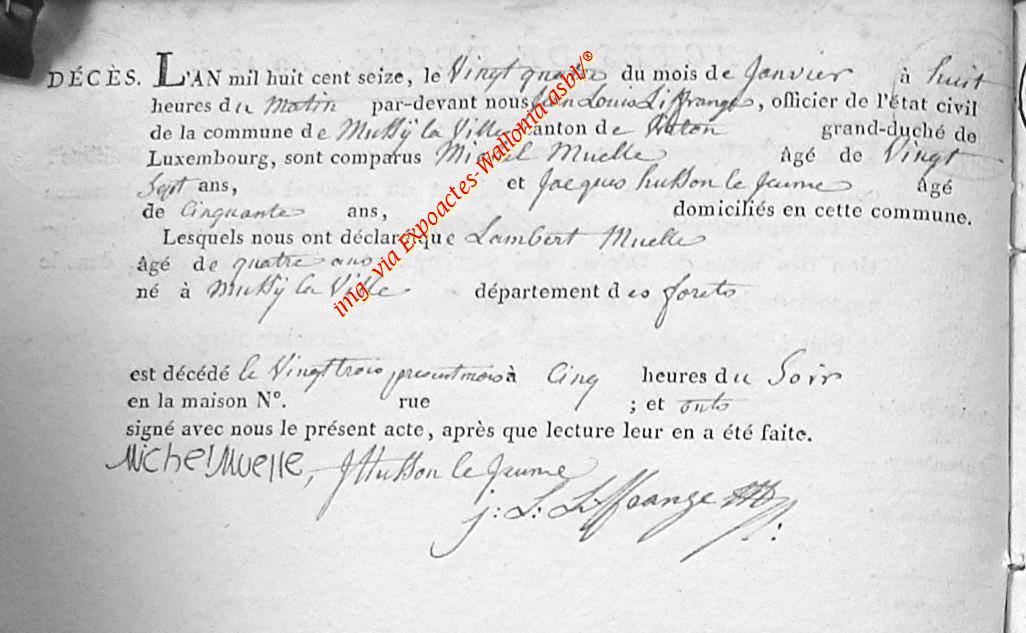 DÉCÈS. L'AN mil huit cent seize, le Vingt quatre du mois de Janvier à huit
heures du Matin par-devant nous Jean Louis Liffrange, officier de l'état civil
de la commune de Mussÿ la Ville canton de Virton grand-duché de
Luxembourg, sont comparus Michel Muelle Âgé de Vingt
Sept ans, et Jacques husson le Jeaume Âgé
de Cinquante ans, domiciliés en cette commune.
Lesquels nous ont déclaré que Lambert Muelle
âgé de quatre ans
né à Mussÿ la Ville département des forets
est décédé le Vingt trois present mois à Cinq heures du Soir
en la maison N°. rue ; et onts
signé avec nous le présent acte, après que lecture leur en a été faite.
Michel Muelle, J husson le Jeaume
j: L: Liffrange
img via Expoactes-Wallonia asbl/®